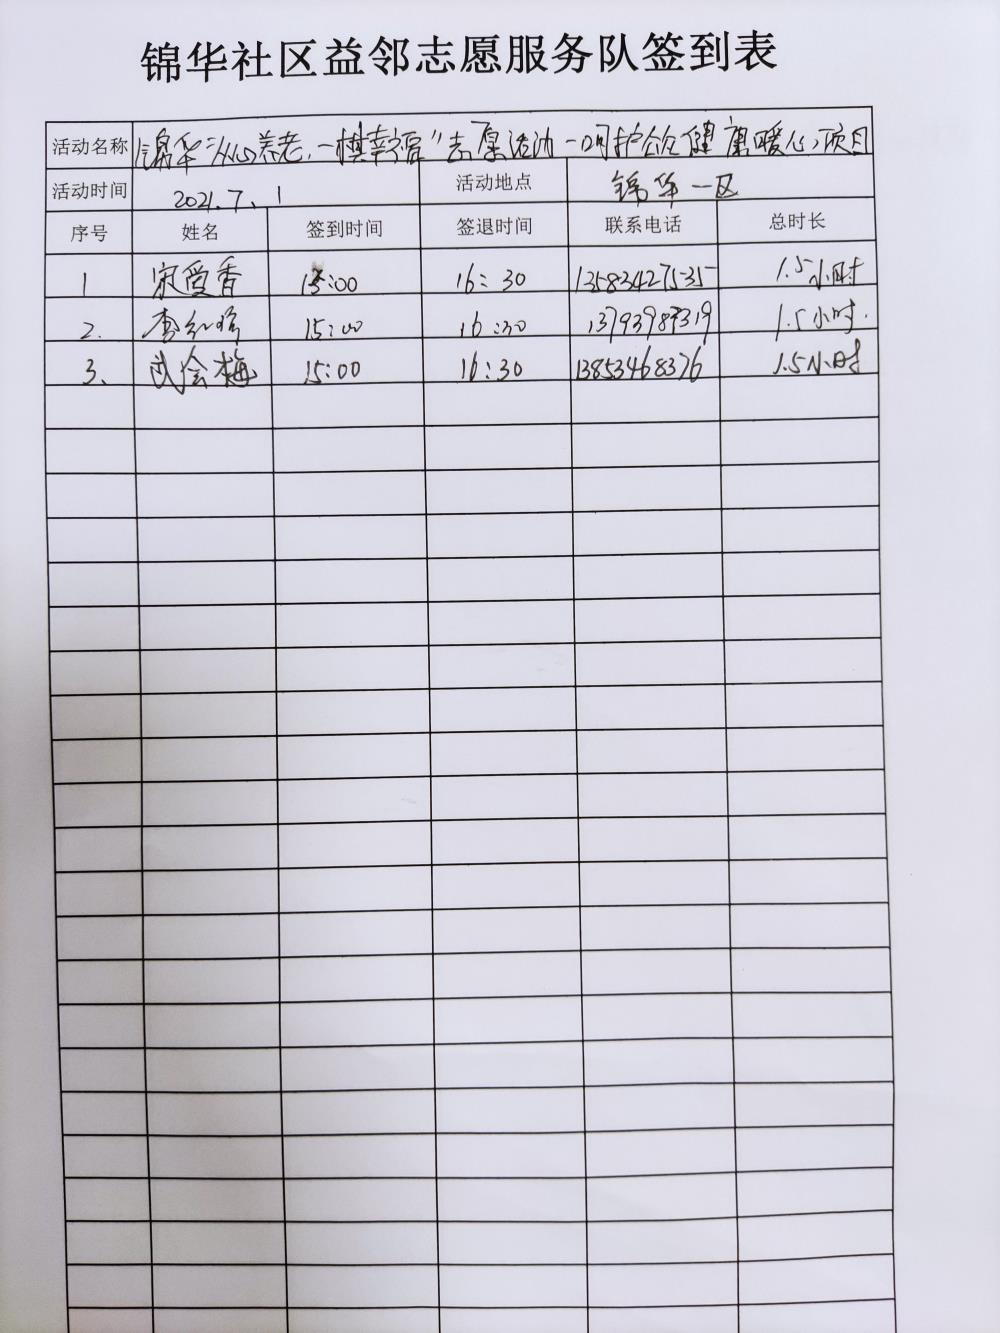 锦华社区益邻志愿服务队签到表
活动名称 "锦华 养老,一 幸福"志愿活动—呵护 健康暖心项目
活动时间 2021.7.1 活动地点 锦华一区
序号 姓名 签到时间 签退时间 联系电话 总时长
1 宋爱香 15:00 16:30 13583427535 1.5小时
2. 李红 15:00 16:30 1379398 319 1.5小时.
3、 武会梅 15:00 16:30 13853468376 1.5小时